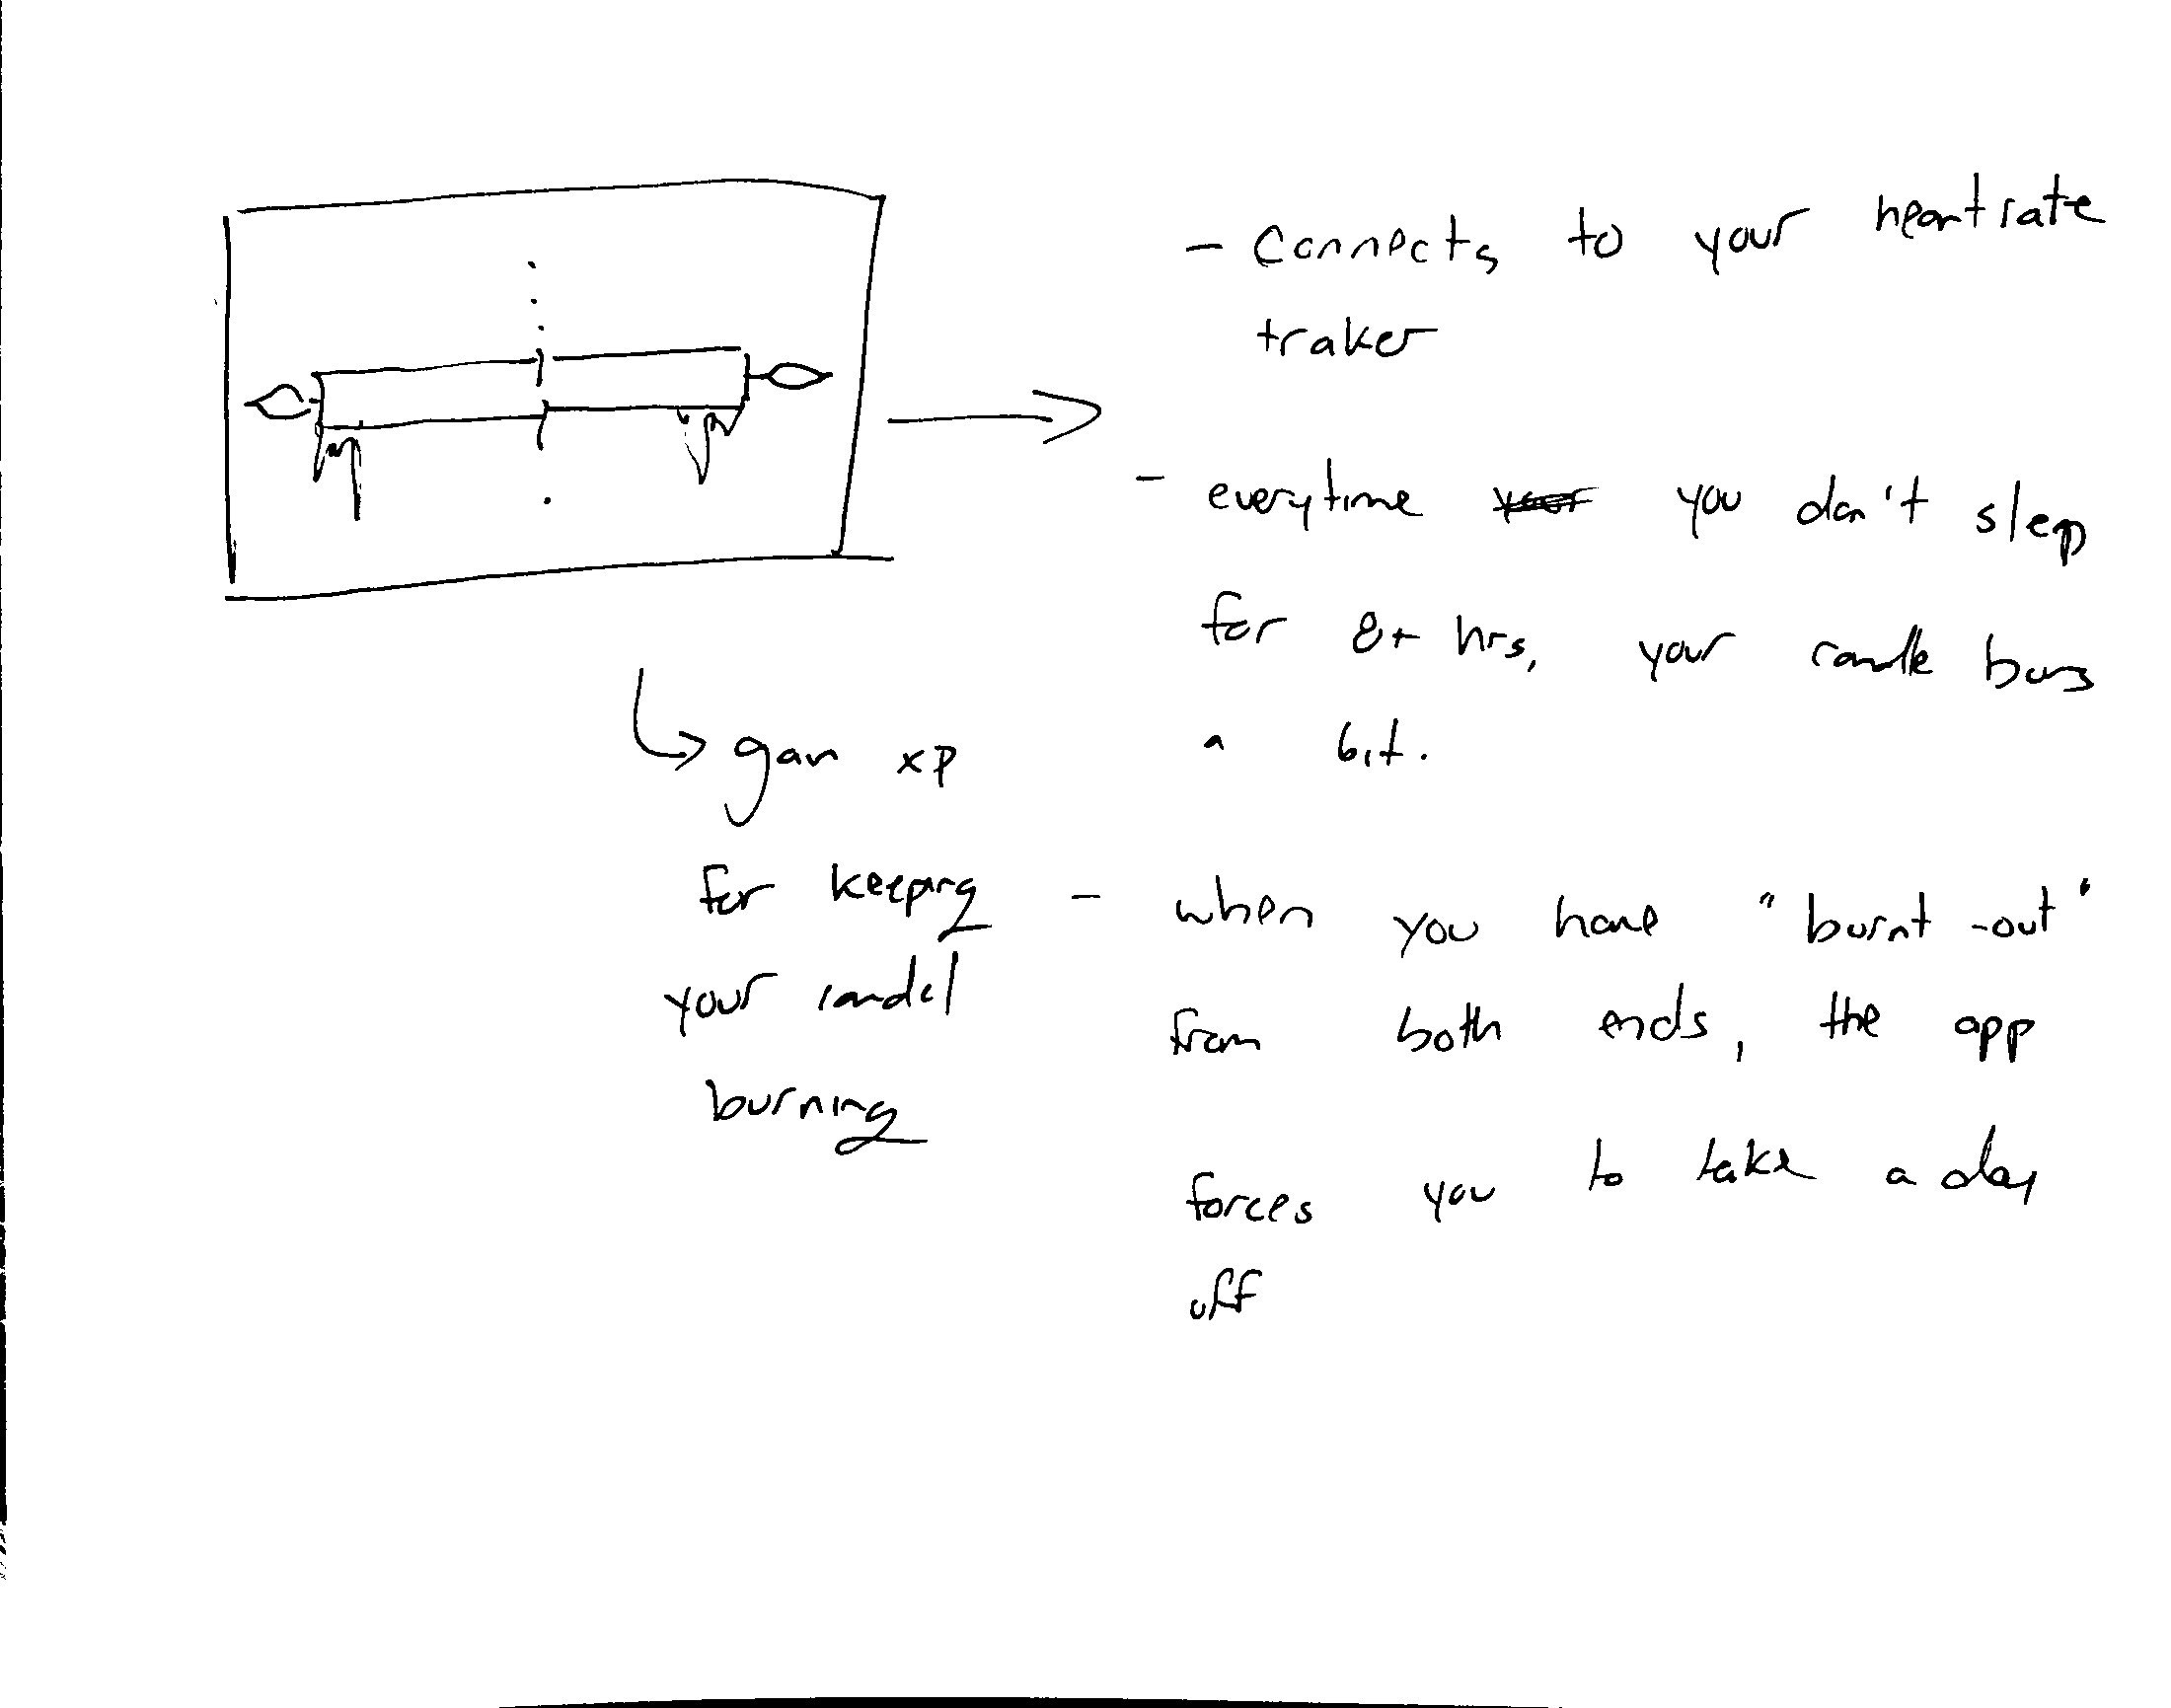 - Connects to your heartrate
traker
- everytime you don't sleep
for 8+ hrs, your candle burns
a bit.
- when you have "burnt-out"
from both ends, the app
forces you to take a day
off
↳ gain xp
for keeping
your candel
burning